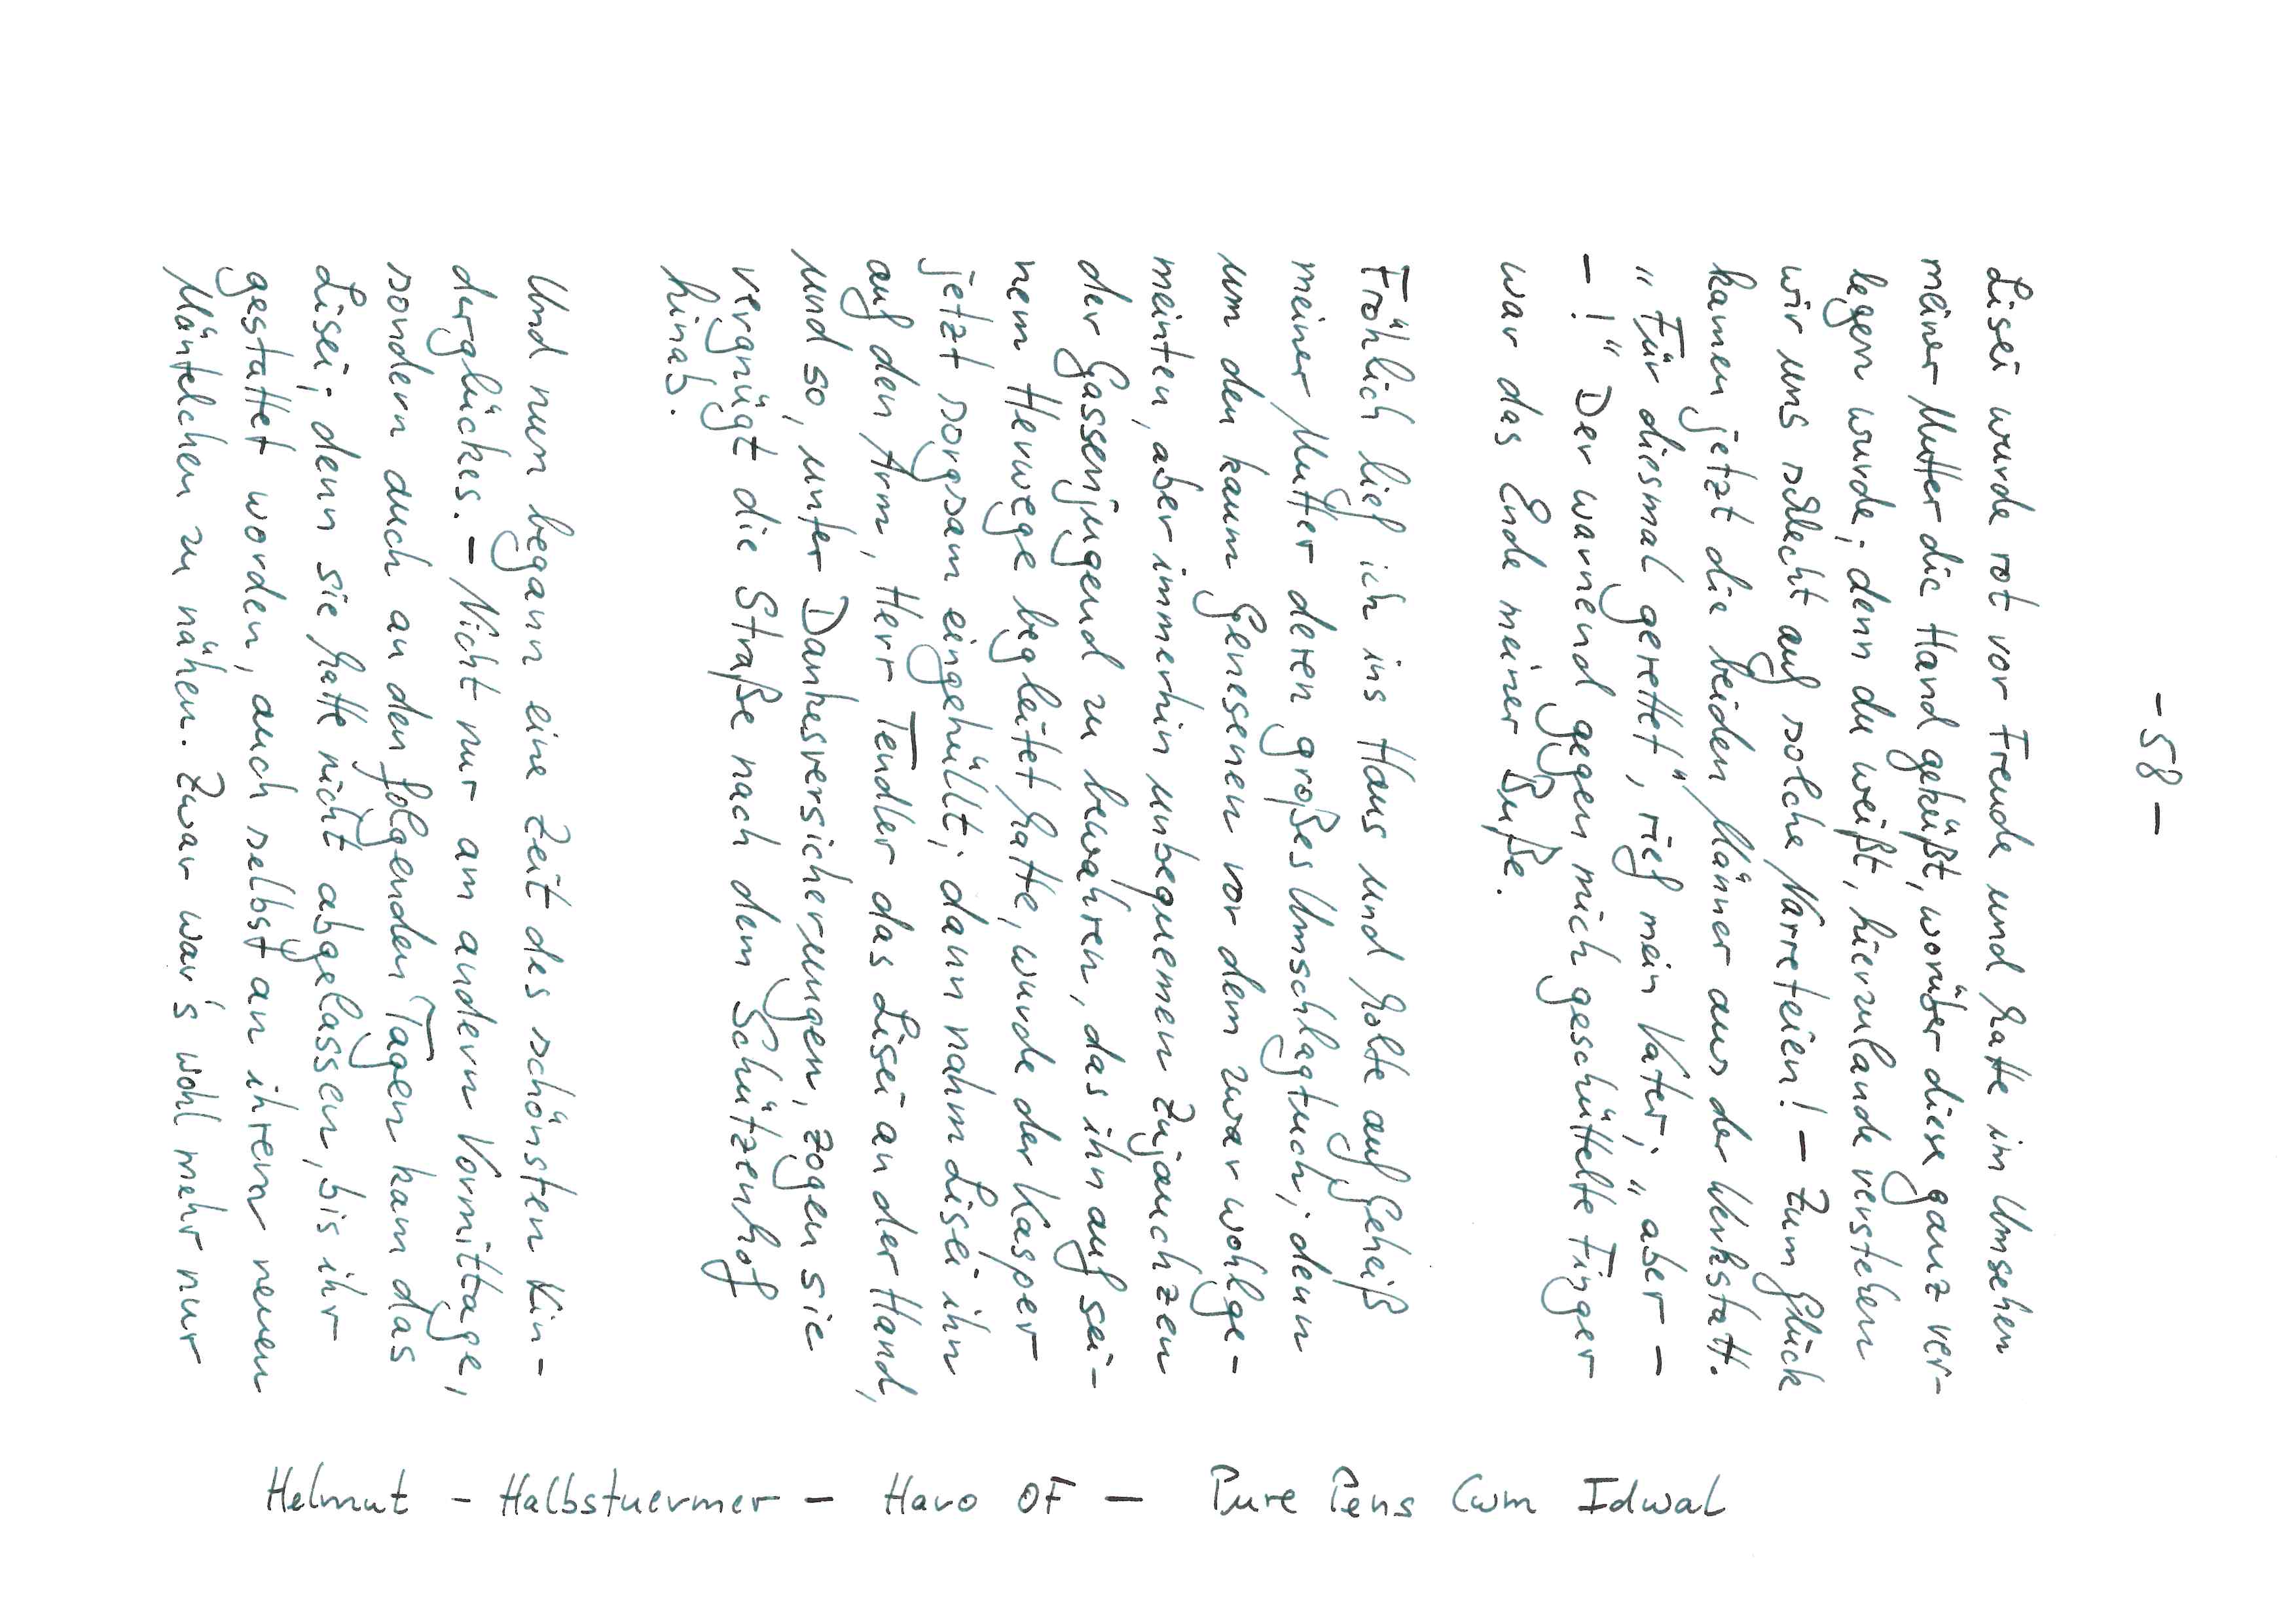 - 58 -
Lisei wurde rot vor Freude und hatte im Umsehen
meiner Mutter die Hand geküßt, worüber diese ganz ver-
legen wurde; denn du weißt, hierzulande verstehen
wir uns schlecht auf solche Narreteien! - Zum Glück
kamen jetzt die beiden Männer aus der Werkstatt.
„Für diesmal gerettet“, rief mein Vater; „aber -
- !“ Der warnend gegen mich geschüttelte Finger
war das Ende meiner Buße.
Fröhlich lief ich ins Haus und holte auf Geheiß
meiner Mutter deren großes Umschlagtuch; denn
um den kaum Genesenen vor dem zwar wohlge-
meinten, aber immerhin unbequemen Zujauchzen
der Gassenjugend zu bewahren, das ihn auf sei-
nem Herwege begleitet hatte, wurde der Kasper
jetzt sorgsam eingehüllt; dann nahm Lisei ihn
auf den Arm, Herr Tendler das Lisei an der Hand,
und so, unter Dankesversicherungen, zogen sie
vergnügt die Straße nach dem Schützenhof
hinab.
Und nun begann eine Zeit des schönsten Kin-
derglückes. - Nicht nur am andern Vormittage,
sondern auch an den folgenden Tagen kam das
Lisei; denn sie hatte nicht abgelassen, bis ihr
gestattet worden, auch selbst an ihrem neuen
Mäntelchen zu nähen. Zwar war's wohl mehr nur
Helmut - Halbstuermer - Haro OF - Pure Pens Cwm Idwal